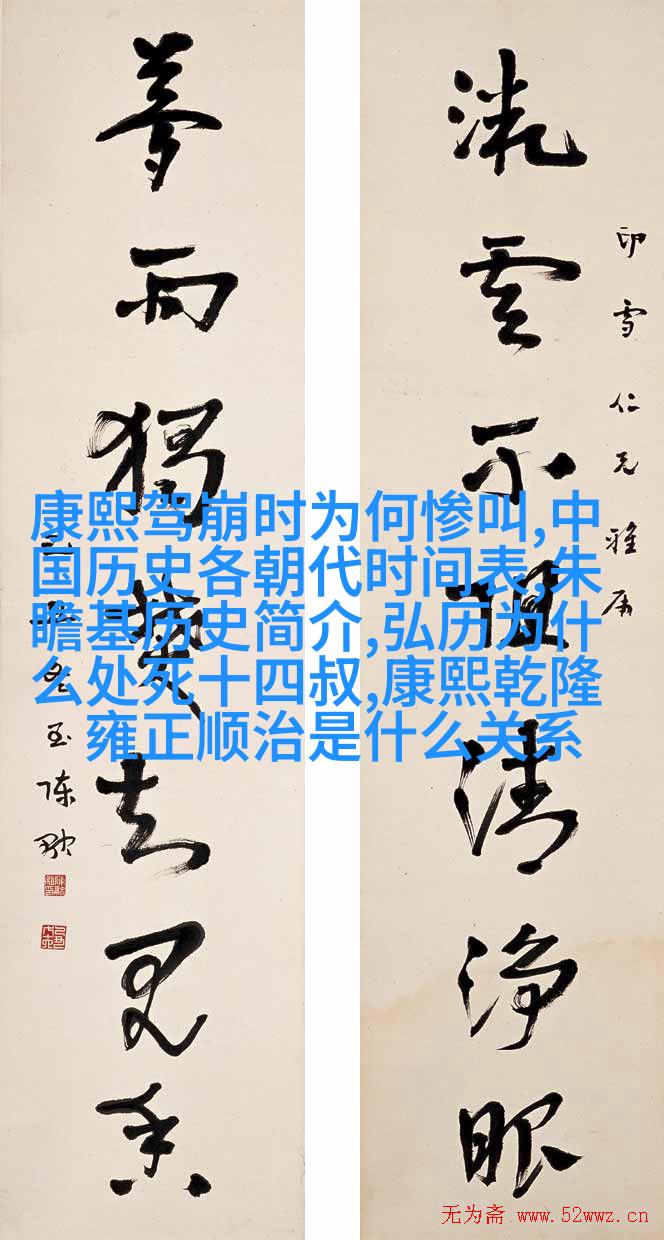 印雪仁兄雅属
雲不阻清淨眼
獨知見香
陈融
康熙驾崩时为何惨叫,中
国历史各朝代时间表,朱
瞻基历史简介,弘历为什
么处死十四叔,康熙乾隆
雍正顺治是什么关系
无为斋 www.52wwz.cn